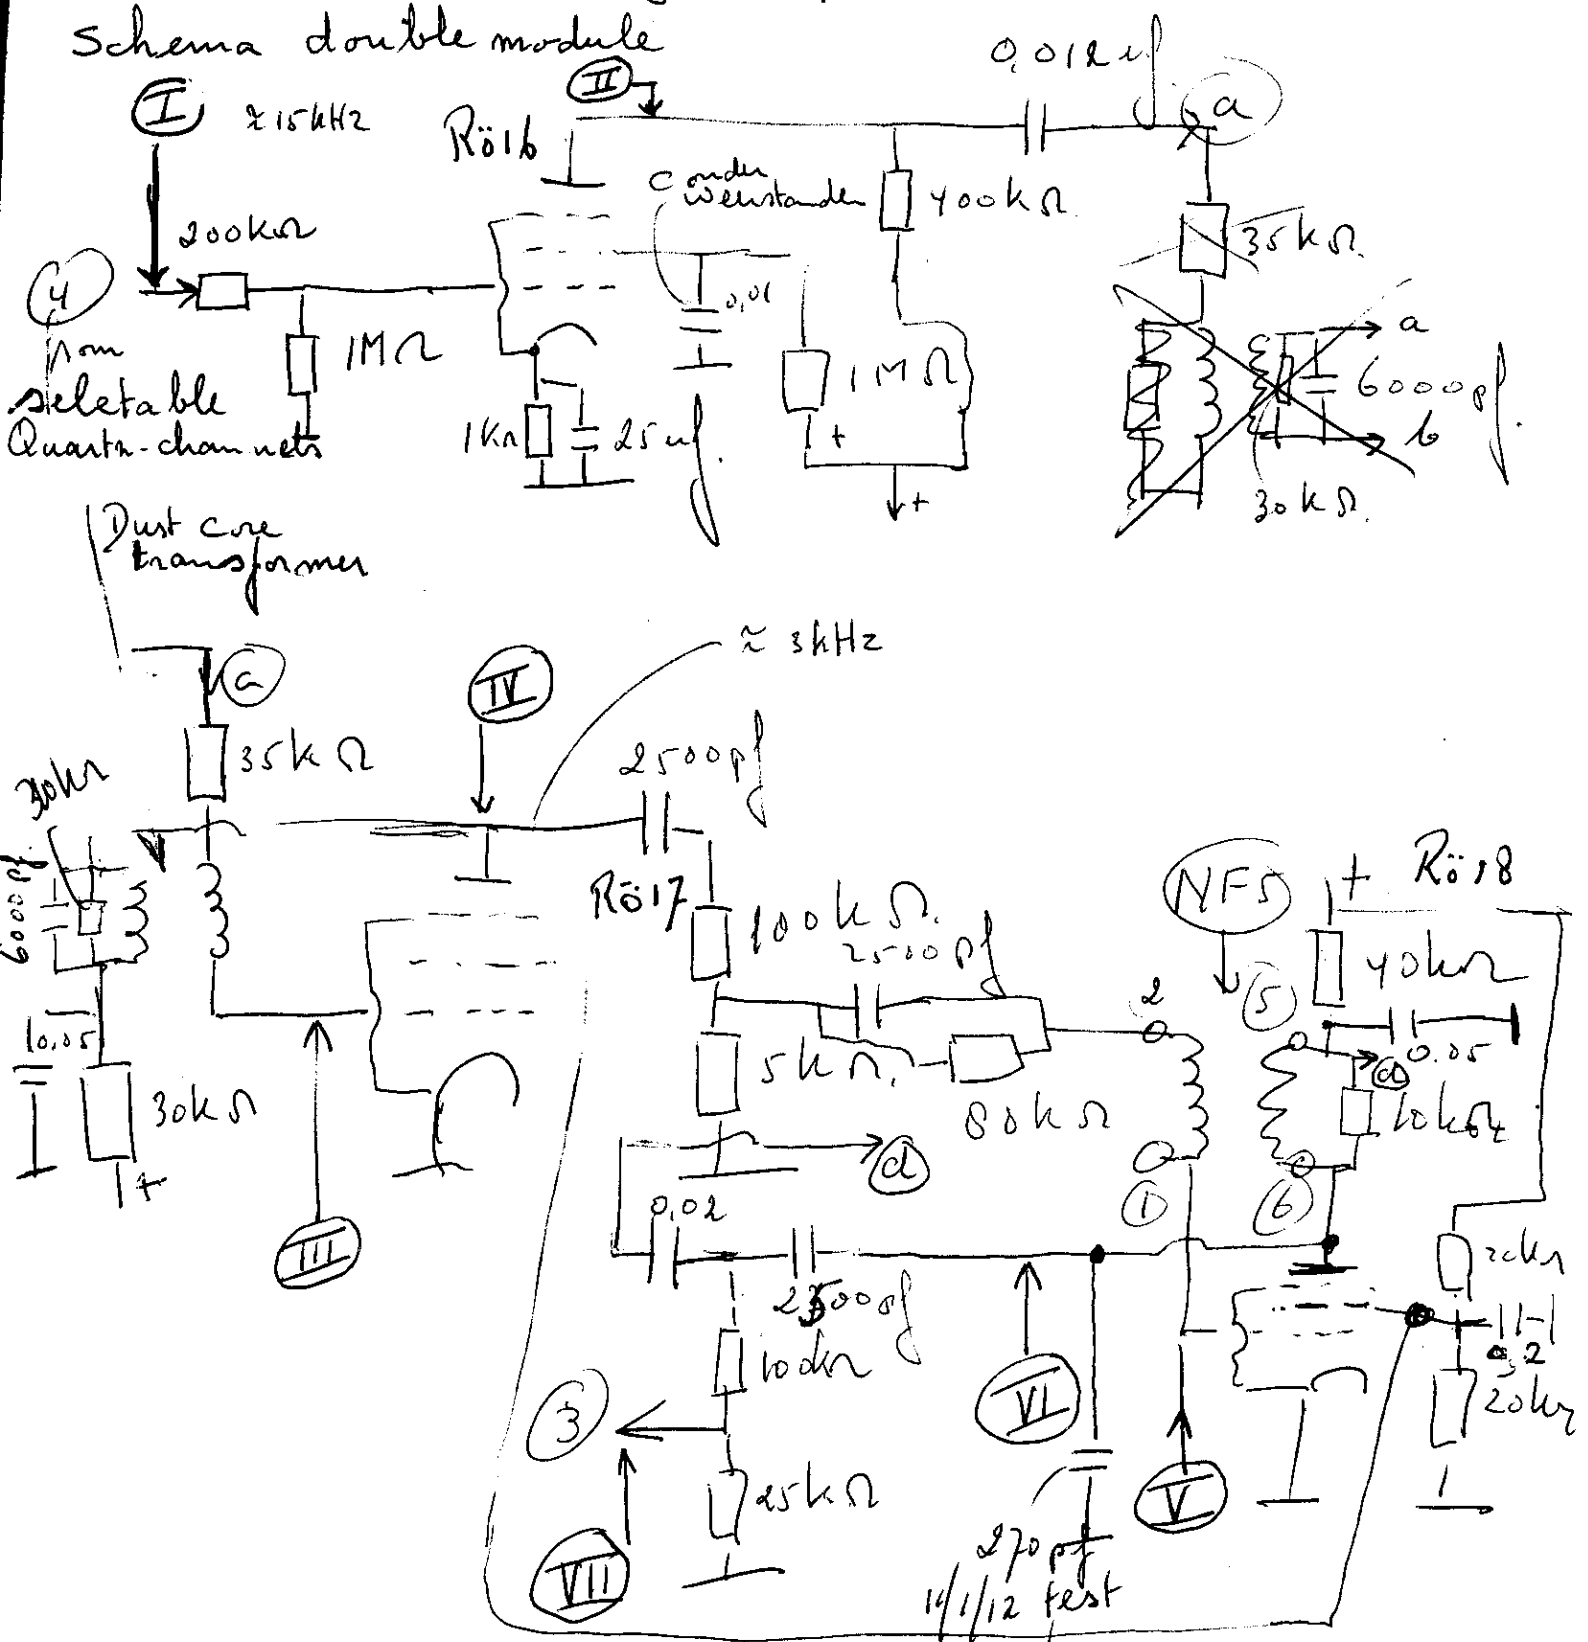 Schema double module
I
≈ 15 kHz
II
0,012 uf
a
Rö16
C onder
weerstanden
400kΩ
35kΩ
200kΩ
4
from
seletable
Quartz-channels
1MΩ
0,01
1MΩ
+
+
1kΩ
25 uf
a
6000pf
b
30kΩ
Dust core
transformer
a
IV
≈ 3kHz
35kΩ
2500pf
30kΩ
6000pf
Rö17
100kΩ
2500pf
NF5
+
Rö18
2
5
40kΩ
0,05
0.05
30kΩ
+
5kΩ
80kΩ
d
10kΩ
d
1
6
III
0,02
2500pf
100kΩ
0,2
20kΩ
3
VI
V
25kΩ
VII
270pf
11/1/12 test